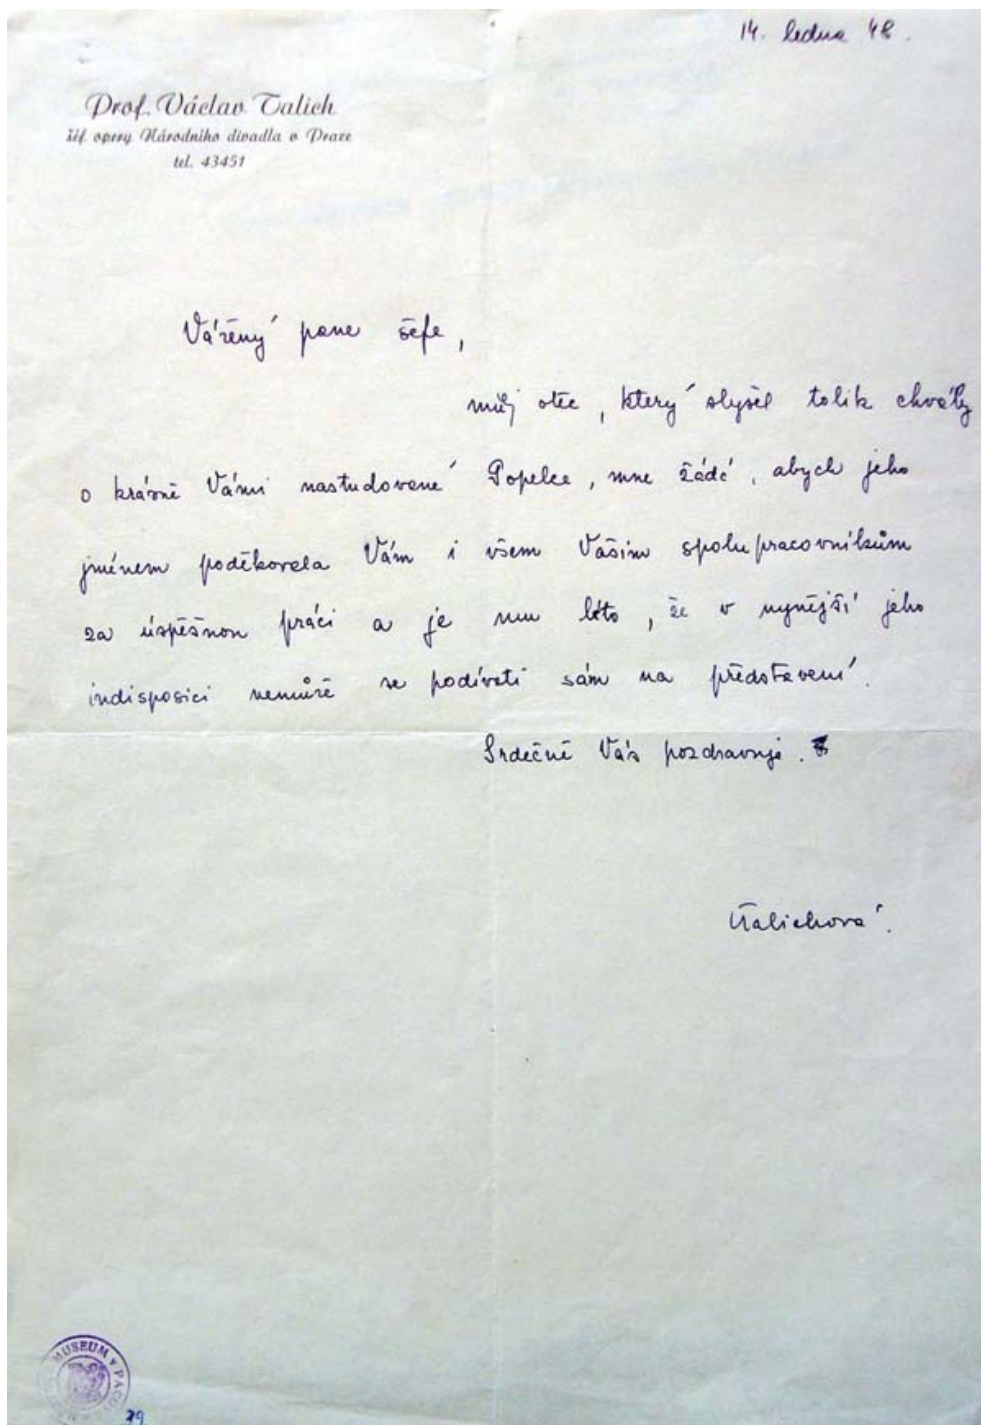 14. ledna 48.
Prof. Václav Talich
šéf opery Národního divadla v Praze
tel. 43451
Vážený pane šéfe,
můj otec, který slyšel tolik chvály
o krásně Vámi nastudované Popelce, mne žádá, abych jeho
jménem poděkovala Vám i všem Vašim spolupracovníkům
za úspěšnou práci a je mu líto, že v nynější jeho
indisposici nemůže se podívati sám na představení.
Srdečně Vás pozdravuje.
Talichová.
MUSEUM V
39